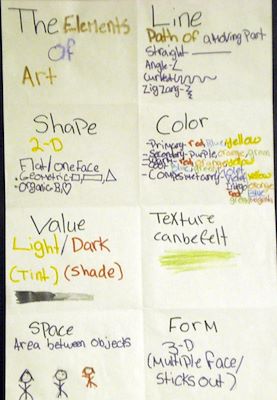 The Elements
Of
Art
Line
Path of a Moving Part
Straight
Angle
Curved
Zig Zang
Shape
2-D
Flat/one face
Geometric
Organic
Color
Primary-red Blue yellow
Secondary-purple, orange, green
orange
violet
Complementary-violet yellow
orange
red
Value
Light/Dark
(Tint) (Shade)
Texture
can be felt
Space
Area between objects
Form
3-D
(Multiple face/
sticks out)